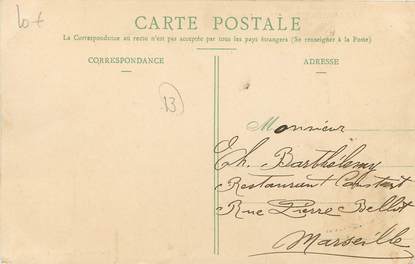 Lot
CARTE POSTALE
La Correspondance au recto n'est pas acceptée par tous les pays étrangers (Se renseigner à la Poste)
CORRESPONDANCE
ADRESSE
13
Monsieur
Ch. Barthélemy
Restaurant Constant
Rue Pierre Bellot
Marseille